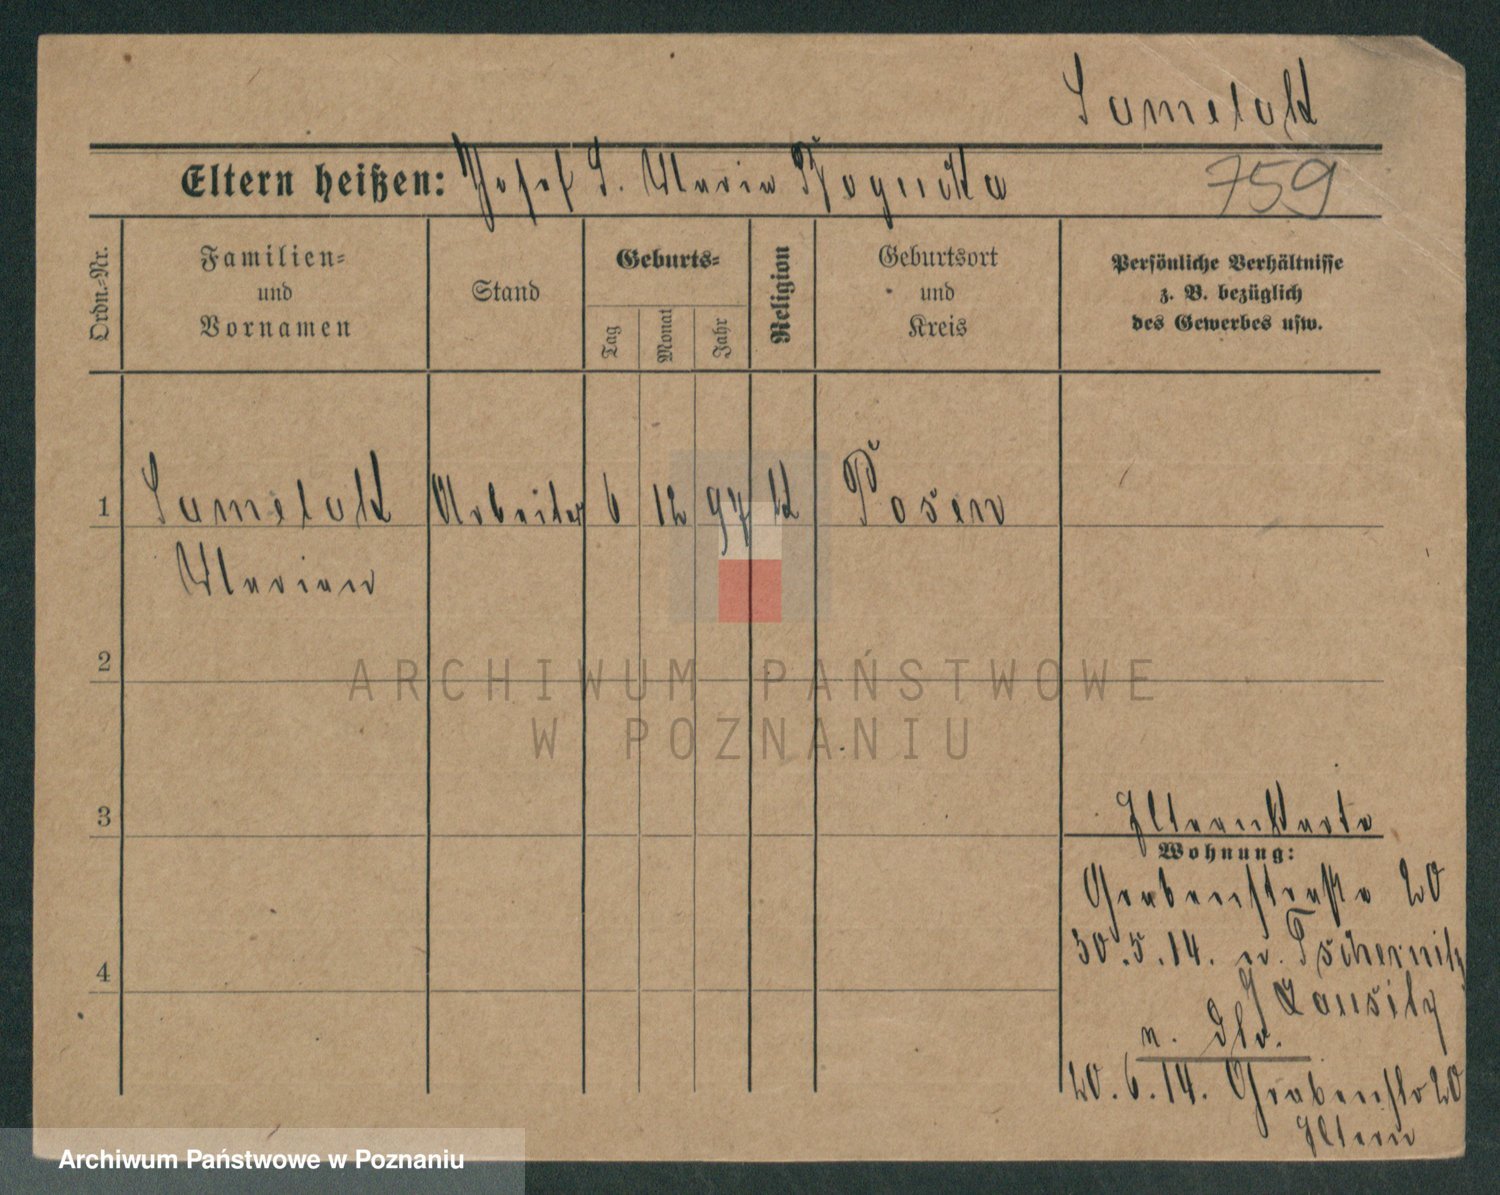 Samelak
Eltern heißen: Josef S. Maria Rogucka
759
Ordn.-Nr.
Familien-
und
Vornamen
Stand
Geburts-
Tag
Monat
Jahr
Religion
Geburtsort
und
Kreis
Persönliche Verhältnisse
z. B. bezüglich
des Gewerbes usw.
1 Samelak Arbeiter 6 12 97 k Posen
Marian
2
ARCHIWUM PAŃSTWOWE
W POZNANIU
3
Elternkarte
Wohnung:
Grabenstraße 20
30.5.14. n. Tschernitz
4
n. Schl.
20.6.14. Grabenstr 20
Eltern
Archiwum Państwowe w Poznaniu